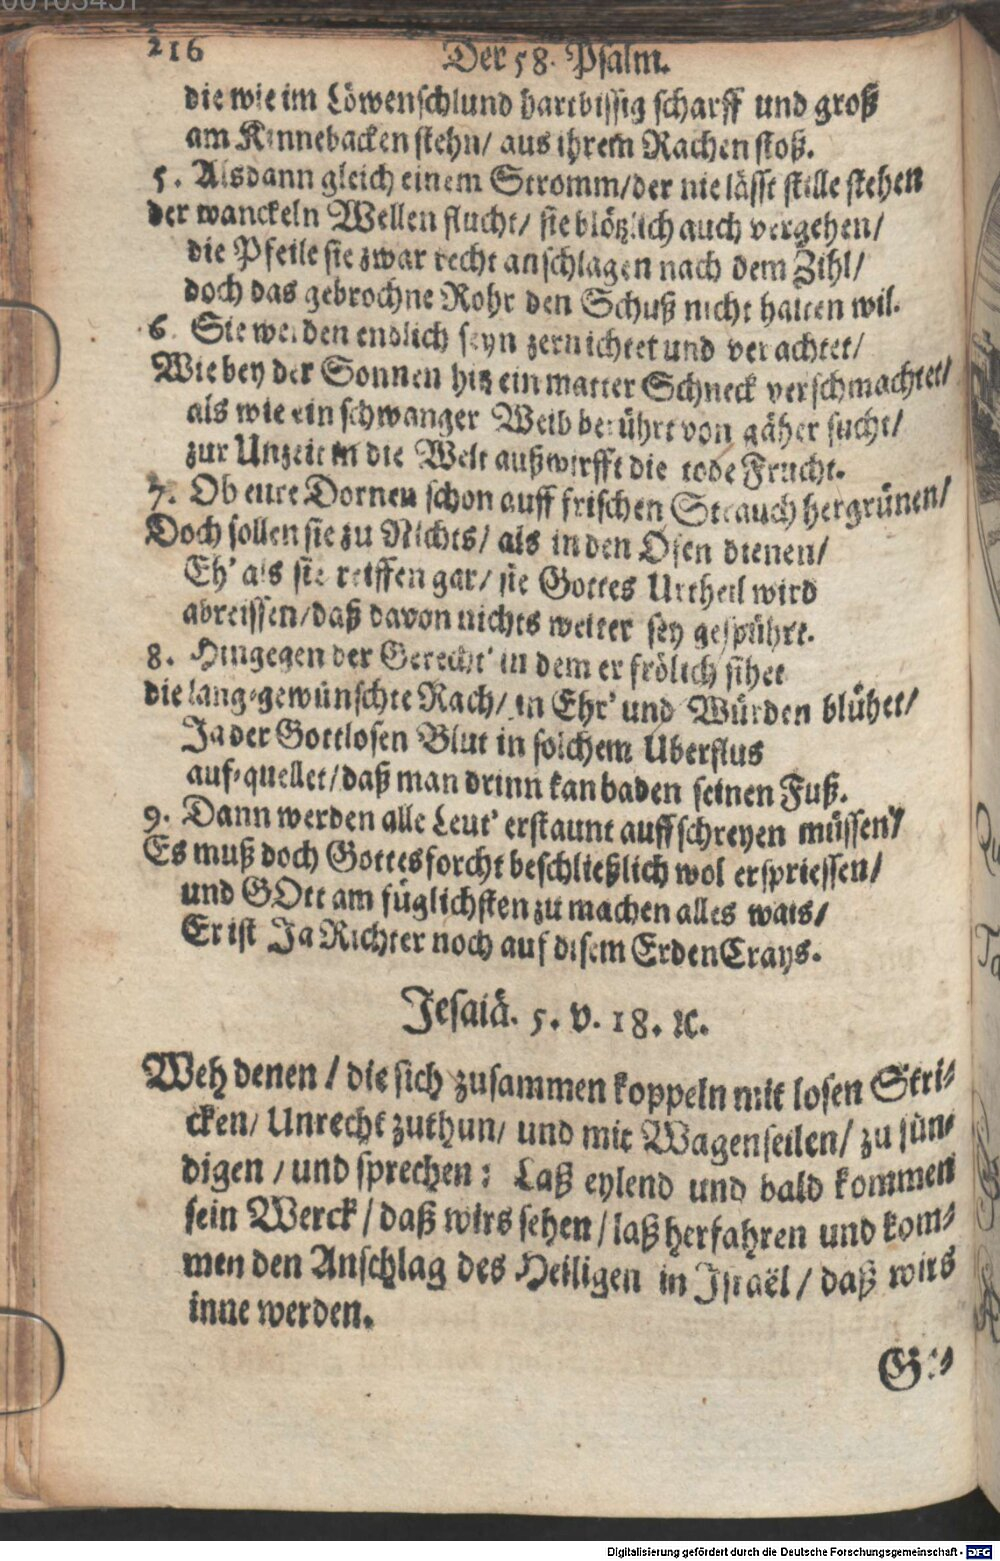 216
Der 58. Psalm.
die wie im Löwenschlund hartbissig scharff und groß
am Kinnebacken stehn/ aus ihrem Rachen stoß.
5. Alsdann gleich einem Stromm/der nie lässt stille stehen
der wanckeln Wellen flucht/ sie blötzlich auch vergehen/
die Pfeile sie zwar recht anschlagen nach dem Zihl/
doch das gebrochne Rohr den Schuß nicht halten wil.
6. Sie werden endlich seyn zernichtet und verachtet/
Wie bey der Sonnen hitz ein matter Schneck verschmachtet/
als wie ein schwanger Weib berührt von gäher sucht/
zur Unzeit in die Welt außwirfft die tode Frucht.
7. Ob eure Dornen schon auff frischen Strauch hergrünen/
Doch sollen sie zu Nichts/ als in den Ofen dienen/
Eh' als sie reiffen gar/ sie Gottes Urtheil wird
abreissen/daß davon nichts weiter sey gespührt.
8. Hingegen der Gerecht' in dem er frölich sihet
die lang-gewünschte Rach/ in Ehr' und Würden blühet/
Ja der Gottlosen Blut in solchem Uberflus
auf-quellet/daß man drinn kan baden seinen Fuß.
9. Dann werden alle Leut' erstaunt auff schreyen müssen/
Es muß doch Gottesforcht beschließlich wol erspriessen/
und GOtt am füglichsten zu machen alles wais/
Er ist Ja Richter noch auf disem ErdenCrays.
Jesaiä. 5. v. 18. ꝛc.
Weh denen / die sich zusammen koppeln mit losen Stri-
cken/ Unrecht zuthun/ und mit Wagenseilen/ zu sün-
digen / und sprechen: Laß eylend und bald kommen
sein Werck / daß wirs sehen / laß herfahren und kom-
men den Anschlag des Heiligen in Israël / daß wirs
inne werden.
Digitalisierung gefördert durch die Deutsche Forschungsgemeinschaft - DFG